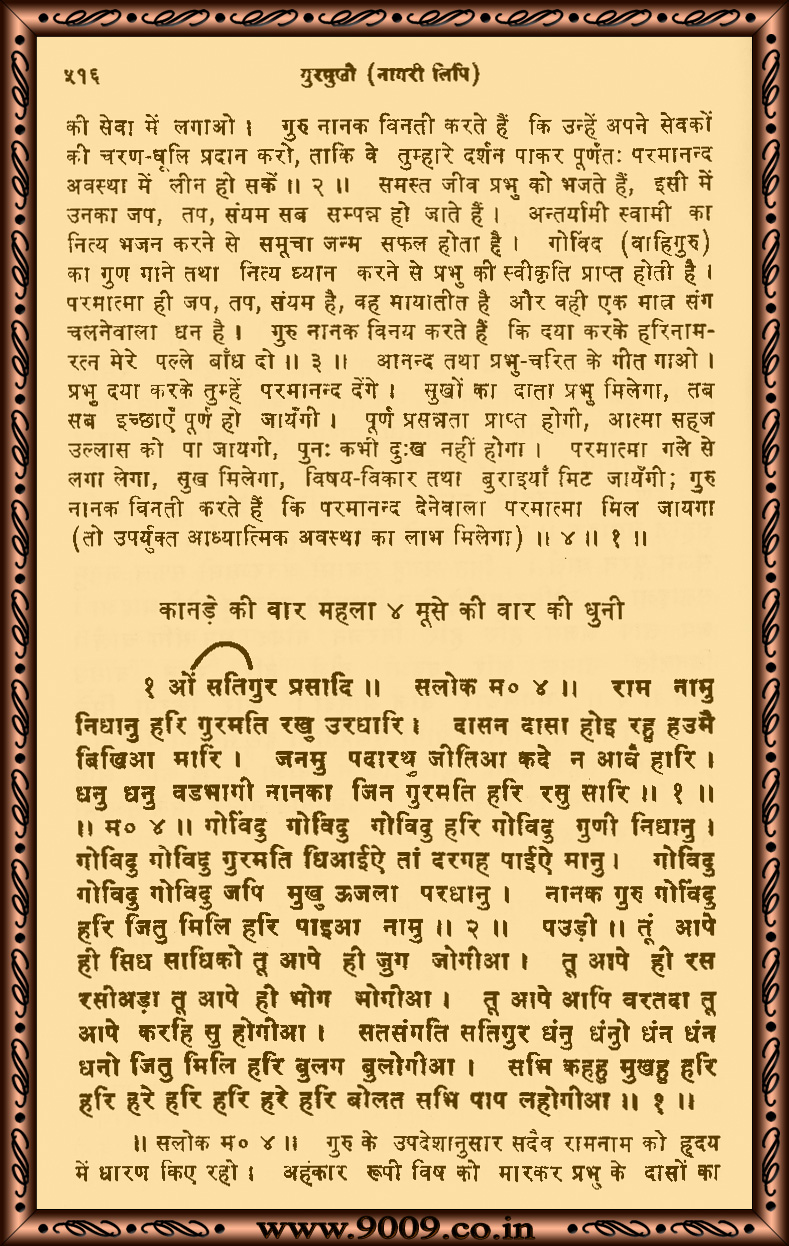 ५१६ गुरमुखी (नागरी लिपि)
की सेवा में लगाओ । गुरु नानक विनती करते हैं कि उन्हें अपने सेवकों
की चरण-धूलि प्रदान करो, ताकि वे तुम्हारे दर्शन पाकर पूर्णतः परमानन्द
अवस्था में लीन हो सकें ॥ २ ॥ समस्त जीव प्रभु को भजते हैं, इसी में
उनका जप, तप, संयम सब सम्पन्न हो जाते हैं । अन्तर्यामी स्वामी का
नित्य भजन करने से समूचा जन्म सफल होता है । गोविंद (वाहिगुरु)
का गुण गाने तथा नित्य ध्यान करने से प्रभु की स्वीकृति प्राप्त होती है ।
परमात्मा ही जप, तप, संयम है, वह मायातीत है और वही एक मात्र संग
चलनेवाला धन है । गुरु नानक विनय करते हैं कि दया करके हरिनाम-
रत्न मेरे पल्ले बाँध दो ॥ ३ ॥ आनन्द तथा प्रभु-चरित के गीत गाओ ।
प्रभु दया करके तुम्हें परमानन्द देंगे । सुखों का दाता प्रभु मिलेगा, तब
सब इच्छाएँ पूर्ण हो जायँगी । पूर्ण प्रसन्नता प्राप्त होगी, आत्मा सहज
उल्लास को पा जायगी, पुनः कभी दुःख नहीं होगा । परमात्मा गले से
लगा लेगा, सुख मिलेगा, विषय-विकार तथा बुराइयाँ मिट जायँगी; गुरु
नानक विनती करते हैं कि परमानन्द देनेवाला परमात्मा मिल जायगा
(तो उपर्युक्त आध्यात्मिक अवस्था का लाभ मिलेगा) ॥ ४ ॥ १ ॥
कानड़े की वार महला ४ मूसे की वार की धुनी
१ ओं सतिगुर प्रसादि ॥ सलोक म० ४ ॥ राम नामु
निधानु हरि गुरमति रखु उरधारि । दासन दासा होइ रहु हउमै
बिखिआ मारि । जनमु पदारथु जीतिआ कदे न आवै हारि ।
धनु धनु वडभागी नानका जिन गुरमति हरि रसु सारि ॥ १ ॥
॥ म० ४ ॥ गोविंदु गोविदु गोविदु हरि गोविदु गुणी निधानु ।
गोविदु गोविदु गुरमति धिआईऐ तां दरगह पाईऐ मानु । गोविदु
गोविदु गोविदु जपि मुखु ऊजला परधानु । नानक गुरु गोविंदु
हरि जितु मिलि हरि पाइआ नामु ॥ २ ॥ पउड़ी ॥ तूं आपे
ही सिध साधिको तू आपे ही जुग जोगीआ । तू आपे ही रस
रसीअड़ा तू आपे ही भोग भोगीआ । तू आपे आपि वरतदा तू
आपे करहि सु होगीआ । सतसंगति सतिगुर धंनु धंनुो धंन धंन
धनो जितु मिलि हरि बुलग बुलोगीआ । सभि कहहु मुखहु हरि
हरि हरे हरि हरि हरे हरि बोलत सभि पाप लहोगीआ ॥ १ ॥
॥ सलोक म० ४ ॥ गुरु के उपदेशानुसार सदैव रामनाम को हृदय
में धारण किए रहो । अहंकार रूपी विष को मारकर प्रभु के दासों का
www.9009.co.in